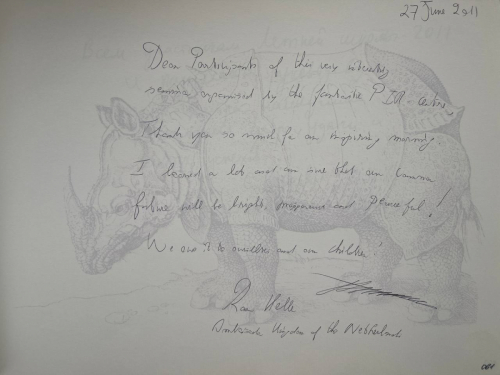 27 June 2011
Dear Participants of this very interesting
seminar organised by the fantastic
Thank you so much for an inspiring morning.
I learned a lot and am sure that our common
future will be bright, prosperous and peaceful!
We owe it to ourselves and our children!
Ambassador Kingdom of the Netherlands
001